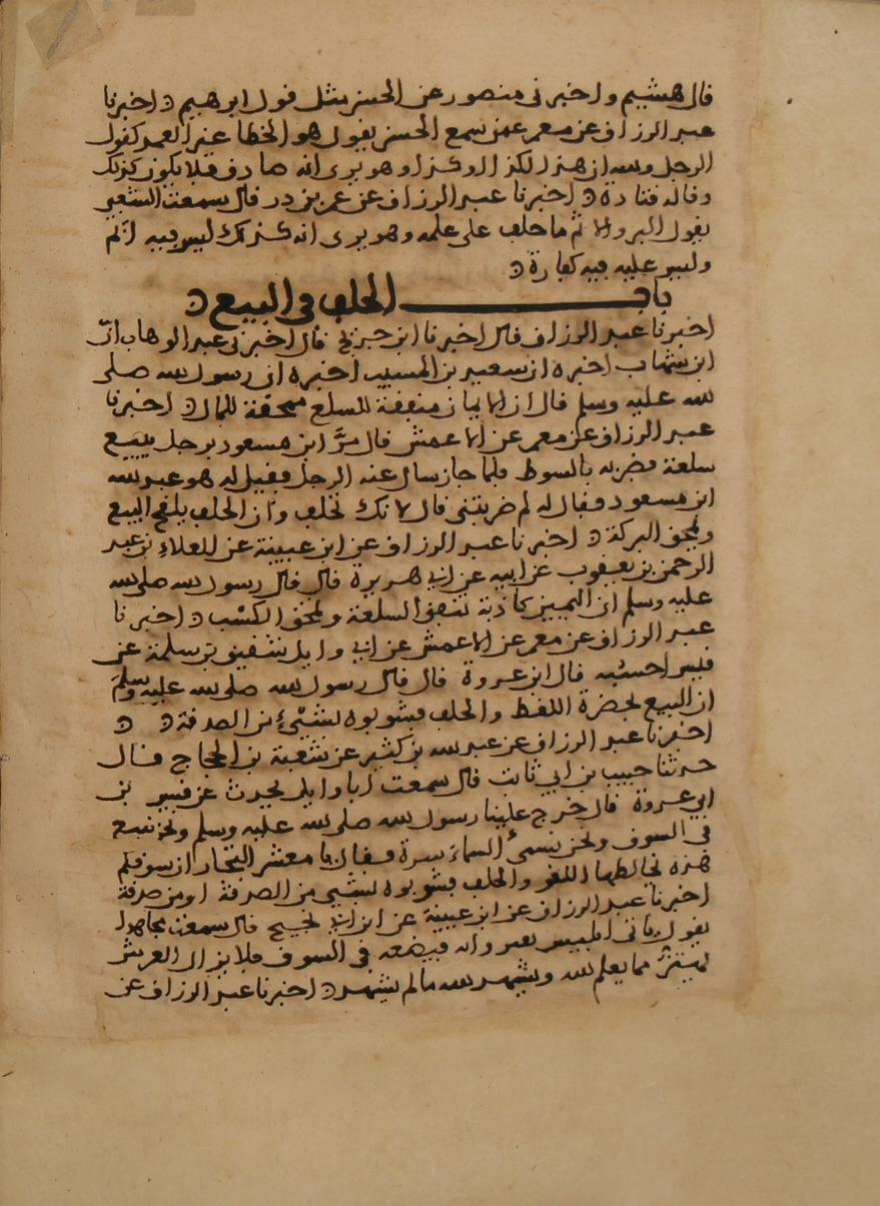 قال هشيم واخبرني منصور عن الحسن مثل قول ابرهيم ه اخبرنا
عبد الرزاق عن معمر عمن سمع الحسن يقول هو الخطا غير العمد كقول
الرجل والله ان هذا لكذا او كذا وهو يرى انه صادق فلا يكون كذلك
وقاله قتادة ه اخبرنا عبد الرزاق عن عمر بن ذر قال سمعت الشعبي
يقول البر والاثم ما حلف على علمه وهو يرى انه كذلك ليس فيه اثم
وليس عليه فيه كفارة ه
باب الحلف في البيع ه
اخبرنا عبد الرزاق قال اخبرنا ابن جريج قال اخبرني عبد الوهاب ان
ابن شهاب اخبره ان سعيد بن المسيب اخبره ان رسول الله صلى
الله عليه وسلم قال ان الايمان منفقة للسلع ممحقة للمال ه اخبرنا
عبد الرزاق عن معمر عن الاعمش قال مرَّ ابن مسعود برجل يبيع
سلعة فضربه بالسوط فلما جاز سال عنه الرجل فقيل له هو عبد الله
ابن مسعود فقال له لم ضربتني قال لانك تحلف وان الحلف يلقح البيع
ويمحق البركة ه اخبرنا عبد الرزاق عن ابن عيينة عن العلاء بن عبد
الرحمن بن يعقوب عن ابيه عن ابي هريرة قال قال رسول الله صلى الله
عليه وسلم ان اليمين كاذبة تنفق السلعة وتمحق الكسب ه اخبرنا
عبد الرزاق عن معمر عن الاعمش عن ابي وايل شقيق بن سلمة عن
قيس احسبه قال ابن عروة قال قال رسول الله صلى الله عليه وسلم
ان البيع يحضره اللغط والحلف فشوبوه بشيء من الصدقة ه ه
اخبرنا عبد الرزاق عن عبد الله بن كثير عن شعبة بن الحجاج قال
حدثنا حبيب بن ابي ثابت قال سمعت ابا وايل يحدث عن قيس بن
ابي عروة قال خرج علينا رسول الله صلى الله عليه وسلم ونحن نبيع
في السوق ونحن نسمى السماسرة فقال يا معشر التجار ان سوقكم
هذه يخالطها اللغو والحلف فشوبوه بشيء من الصدقة او من صدقة
اخبرنا عبد الرزاق عن ابن عيينة عن ابن ابي نجيح قال سمعت مجاهدا
يقول ياتي ابليس فيضعه في السوق فلا يزال العرش
يهتز مما يعلم الله ويشهد الله ما لم يشهد ه اخبرنا عبد الرزاق عن